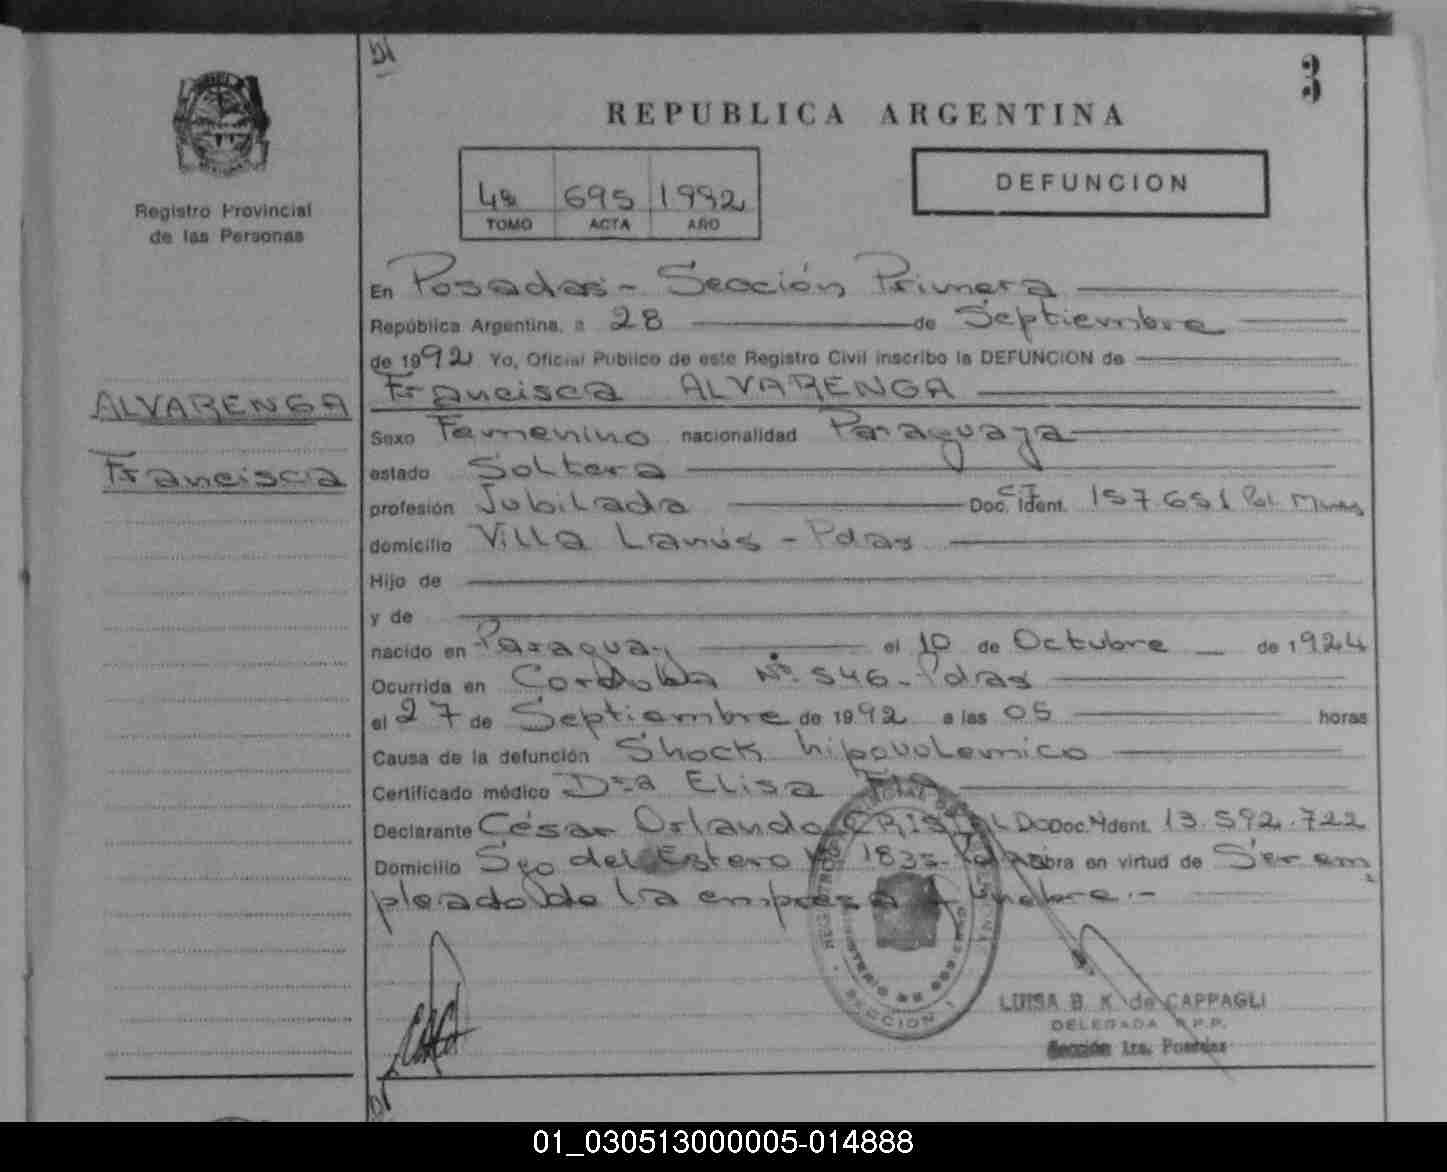 3
REPUBLICA ARGENTINA
DEFUNCION
695 1992
TOMO ACTA AÑO
Registro Provincial
de las Personas
En Posadas - Sección Primera
República Argentina, a 28 de Septiembre
de 1992 Yo, Oficial Publico de este Registro Civil inscribo la DEFUNCION de
Francisca ALVARENGA
ALVARENGA
Francisca
Sexo Femenino nacionalidad Paraguaya
estado Soltera
profesión Jubilada Doc. Ident. C.I. 157.651 Pol. Mnes
domicilio Villa Lanús - Pdas
Hijo de
y de
nacido en Paraguay el 10 de Octubre de 1924
Ocurrida en Cordoba Nº 546 - Pdas
el 27 de Septiembre de 1992 a las 05 horas
Causa de la defunción Shock hipovolemico
Certificado médico Dra Elisa
Declarante César Orlando Doc. Ident. 13.592.722
Domicilio Sgo del Estero Obra en virtud de Ser em
pleado de la empresa funebre.-
LUISA B. K. de CAPPAGLI
DELEGADA R.P.P.
Sección 1ra. Posadas
01_030513000005-014888